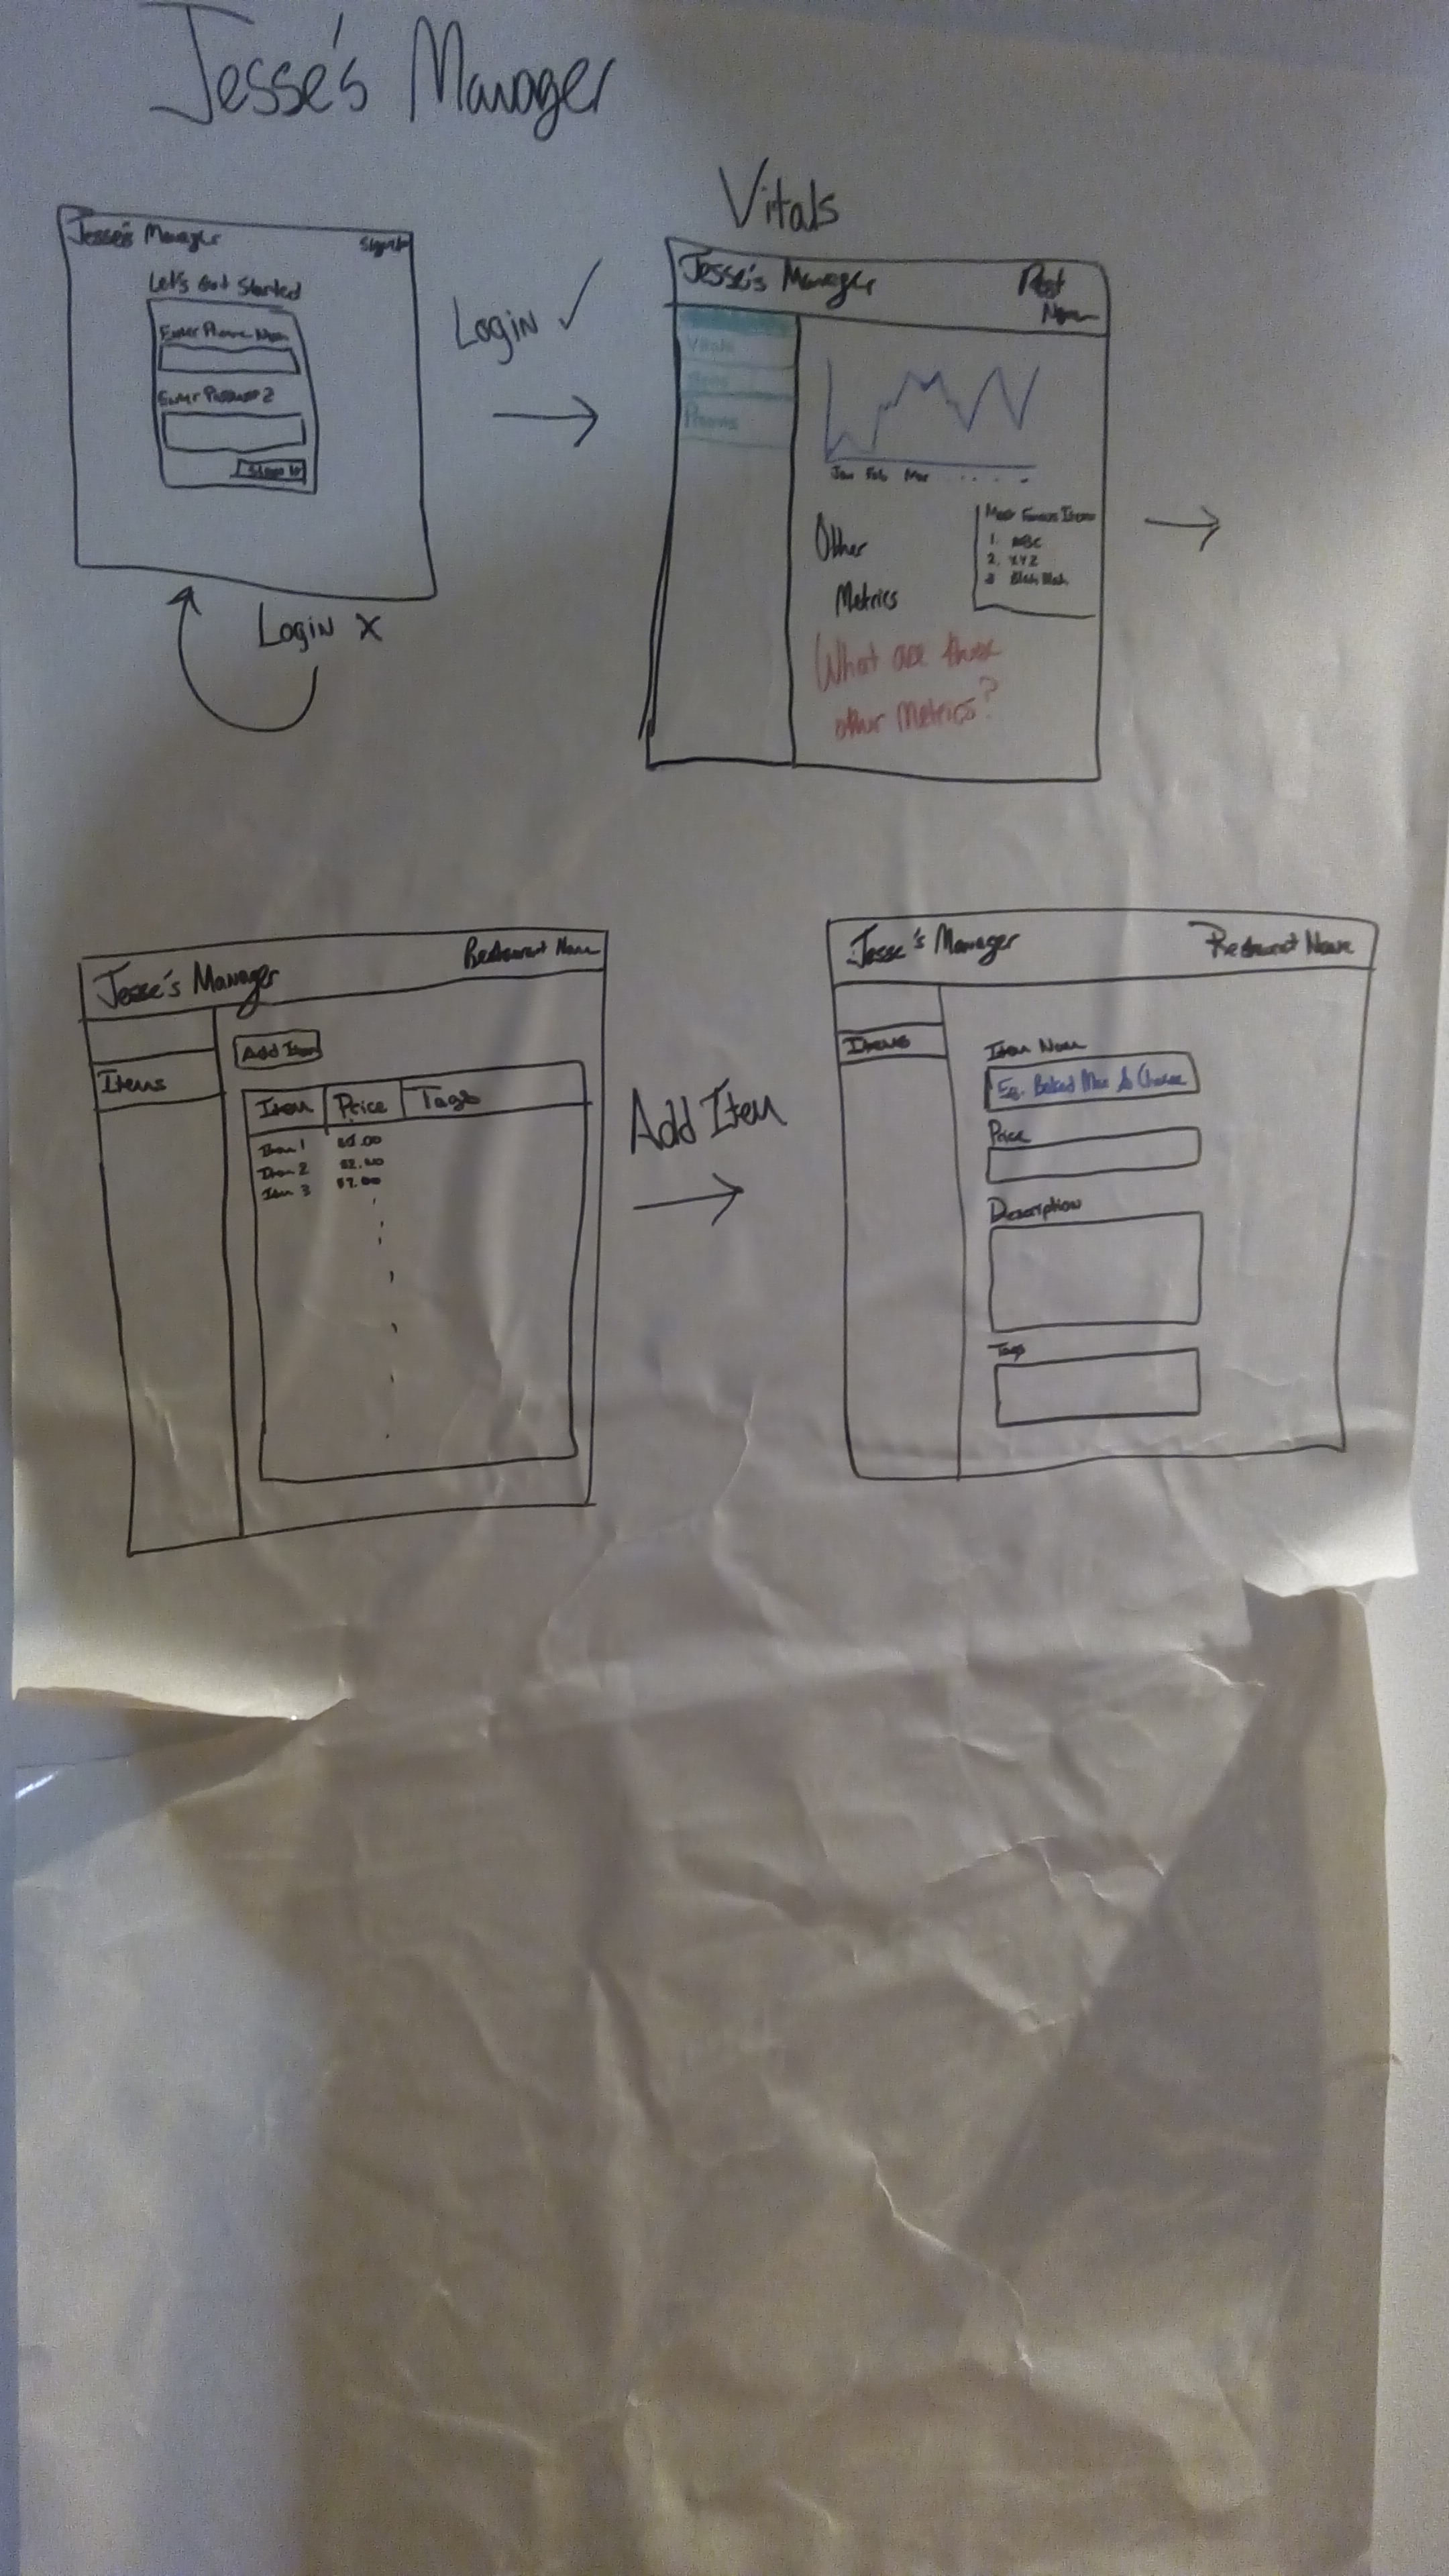 Jesse's Manager
Jesse's Manager
Let's Get Started
Enter Phone Num
Enter Password
Sign In
Login ✓
Login X
Vitals
Jesse's Manager
Rest
Name
Vitals
Items
Jan Feb Mar . . . . .
Other
Metrics
Most Famous Items
1. ABC
2. XYZ
3 Blah Blah
What are these
other Metrics?
Jesse's Manager
Restaurant Name
Items
Add Item
Item Price Tags
Item 1
Item 2
Item 3 $7.00
Add Item
Jesse's Manager
Restaurant Name
Items
Item Name
Eg. Baked Mac & Cheese
Price
Description
Tags